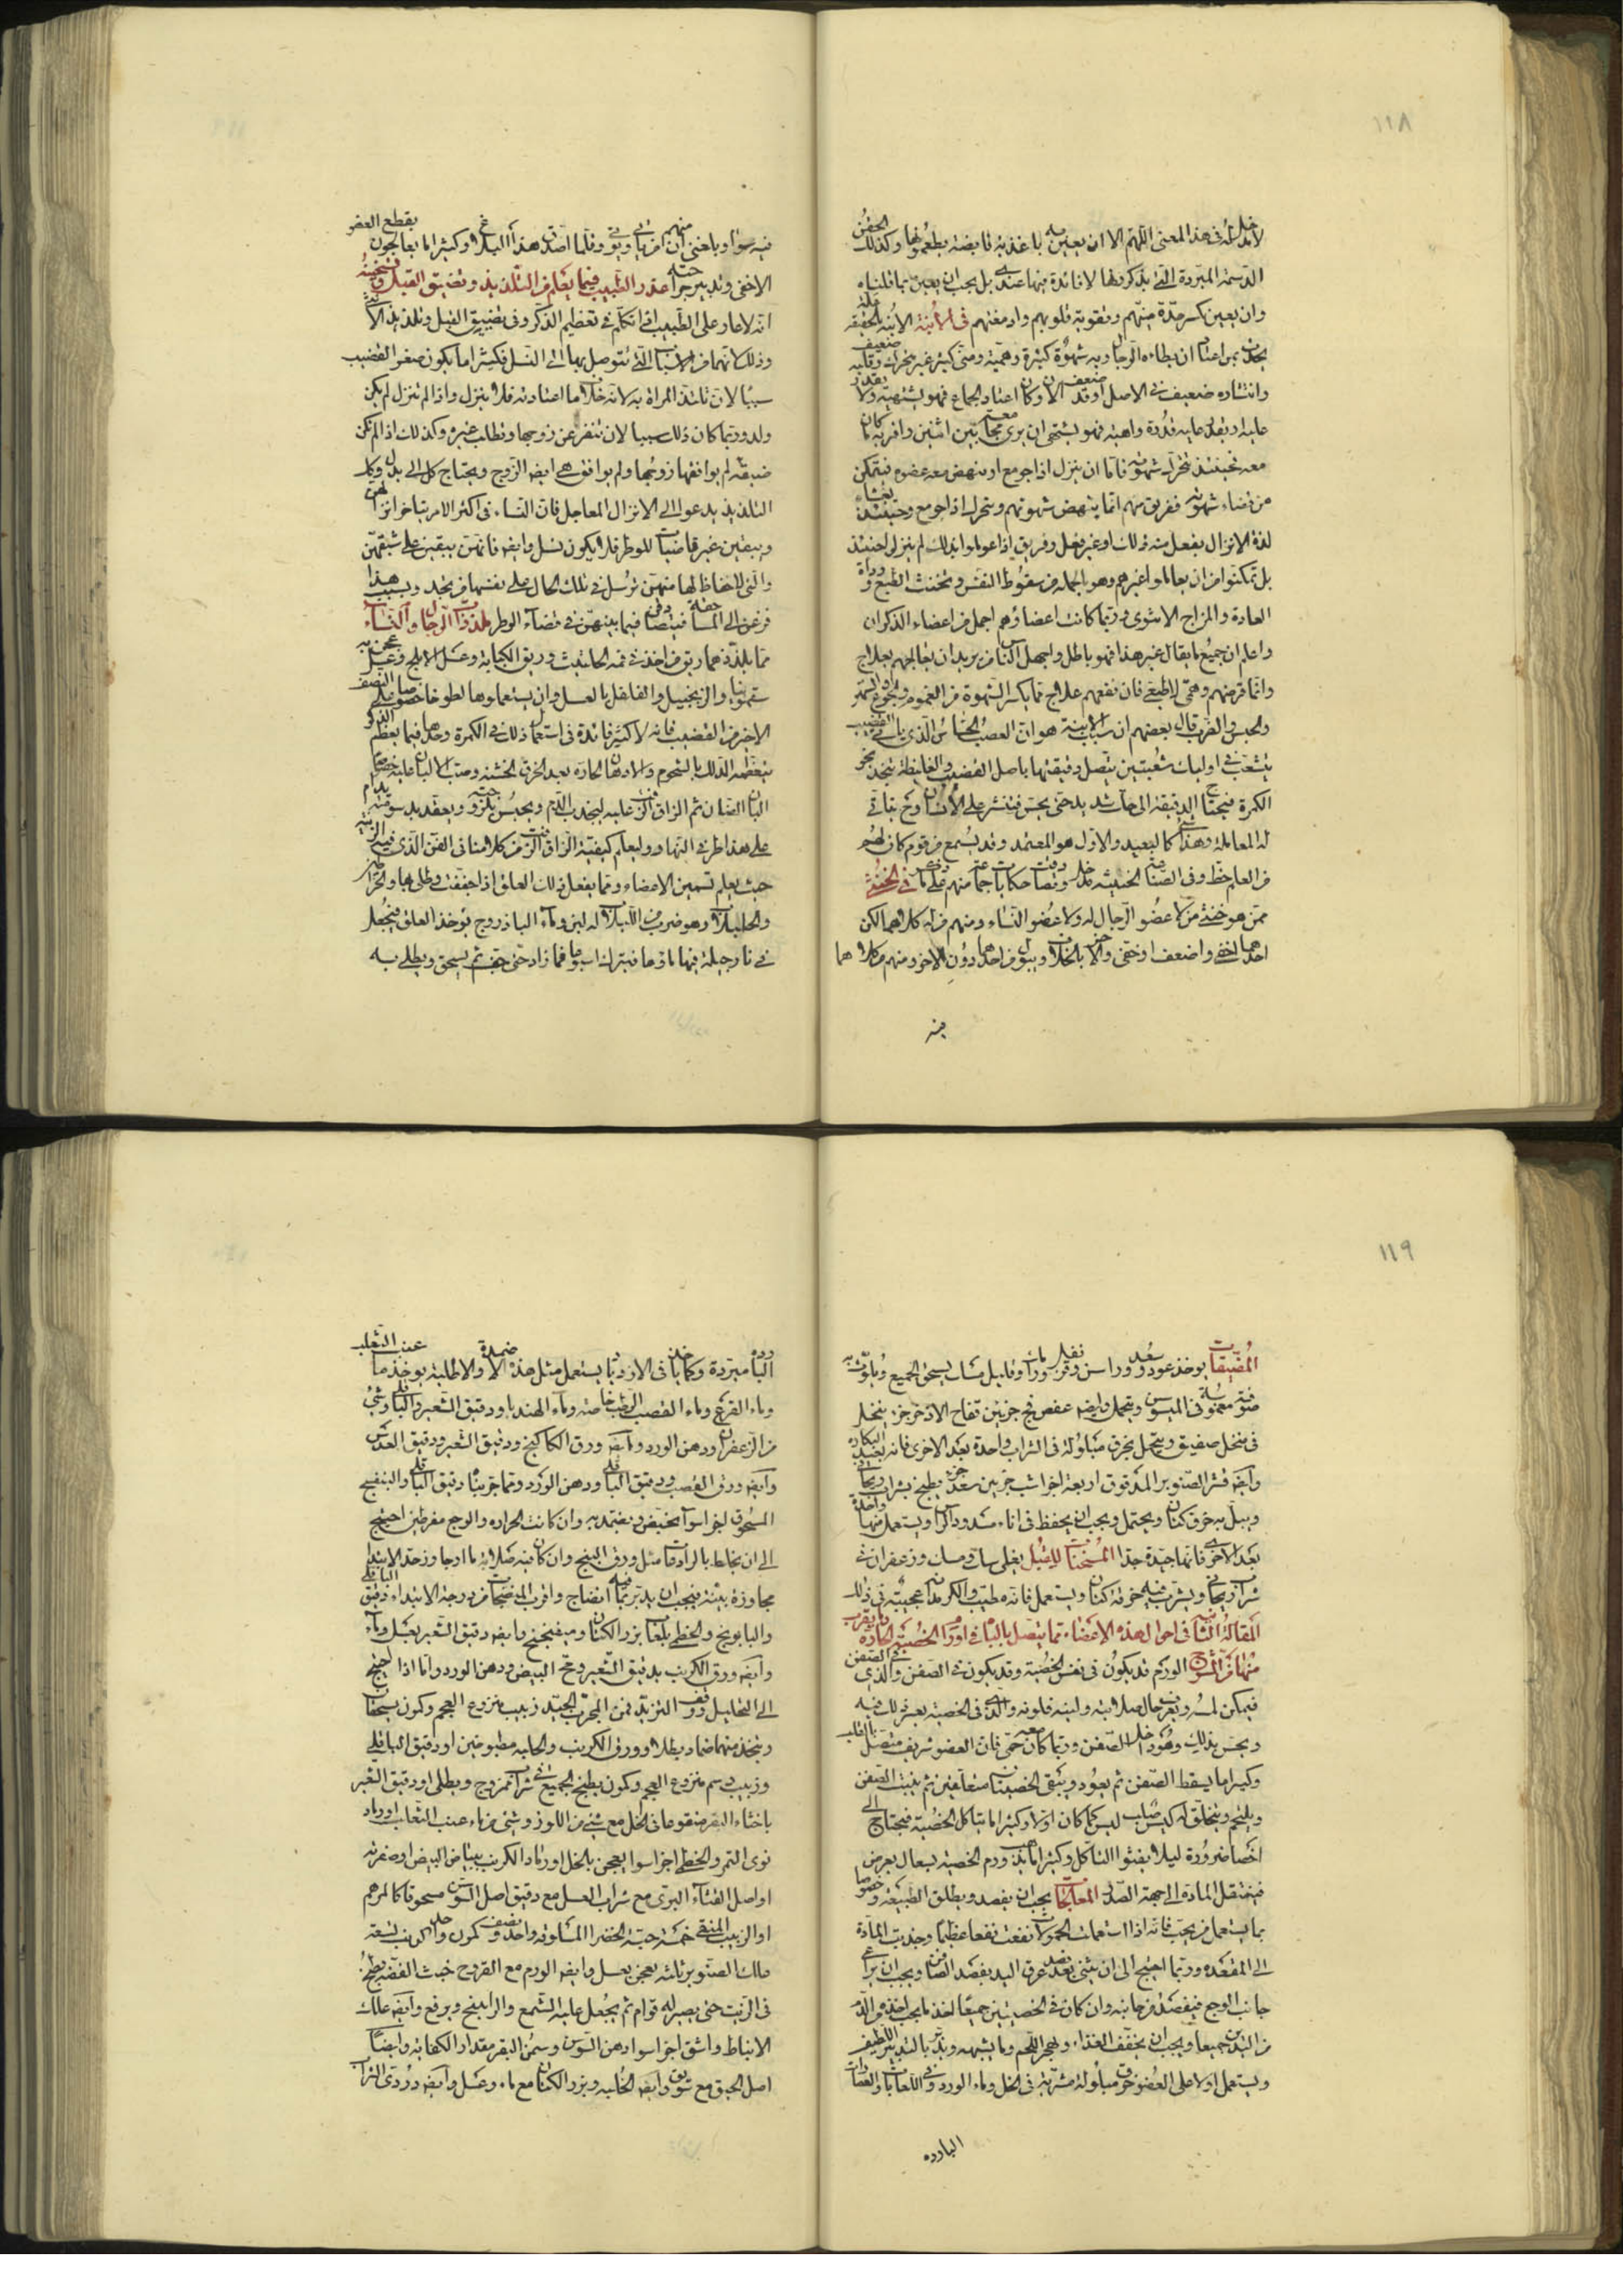 ١١٨
لا مدخل له فى هذا المعنى اللهم الا ان يعين عليه باغذية قابضة يطعمونها وكذلك الحقن
الدسمة المبردة التى يذكرونها لا فائدة فيها عندى بل يجب ان يعين بما قلناه
وان يعين بكسر حدة منيهم وتقوية قلوبهم وادمغتهم فى الأبنة الابنة بالحقيقة علة
يحدث لمن اعتاد ان يطاءه الرجال وبه شهوة كثيرة وهمية ومنى كثير غير متحرك وقلبه ضعيف
وانتشاره ضعيف فى الاصل او قد ضعف الان وكان اعتاد الجماع فهو يشتهيه ولا يقدر
عليه او يقدر عليه قدرة واهية فهو يشتهى ان يرى مجامعة بين اثنين واقربه ما كان
معه فحينئذ تتحرك شهوته فاما ان ينزل اذا جومع او ينهض معه عضوه فيتمكن
من قضاء شهوته ففريق منهم انما ينهض شهوتهم ويتحرك اذا جومع وحينئذ يغشاه
لذة الانزال بفعل منه ذلك او غير فعل وفريق اذا عوملوا بذلك لم ينزلوا حينئذ
بل تمكنوا من ان يعاملوا غيرهم وهو بالجملة من سقوط النفس وتخنث الطبع ورداءة
العادة والمزاج الانثوى وربما كانت اعضاؤهم اجمل من اعضاء الذكران
واعلم ان جميع ما يقال غير هذا فهو باطل واجهل الناس من يريد ان يعالجهم بعلاج
وانما مرضهم وهمى لا طبيعى فان نفعهم علاج فما يكسر الشهوة من الغموم والجوع والسهر
والحبس والضرب قال بعضهم ان سبب الابنة هو ان العصب الحساس الذى ياتى القضيب
يتشعب فى اوليات شعبتين يتصل دقيقتها باصل القضيب والغليظة تنحدر نحو
الكمرة فيحتاج الدقيقة الى حاك شديد حتى يحس فينتشر على الانسان وح يتاتى
له المعاملة وهذا شى كالبعيد والاول هو المعتمد وقد يسمع من قوم كان لهم
من العلم حظ وفى الصناعة الخبيثة مدخل وتصادقت حكايات جماعة منهم على ما فى الخنثى
ممن هو خنثى من لا عضو الرجال له ولا عضو النساء ومنهم من له كلاهما لكن
احدهما اخفى واضعف او خفى والاخر بالخلاف ويبول من احدهما دون الاخر ومنهم من كلاهما
فيه
فيه سواء وبلغنى ان منهم من ياتى ويوتى وقلما اصدق هذا البلاغ وكثيرا ما يعالجون بقطع العضو
الاخفى وتدبير جراحته عذر الطبيب فيما يعلم من التلذيذ وتضييق القبل وتسخينه
انه لا عار على الطبيب اذا تكلم فى تعظيم الذكر وفى تضييق القبل وتلذيذ الانثى
وذلك لانهما من الاسباب التى يتوصل بها الى النسل فكثيرا ما يكون صغر القضيب
سببا لان تلتذ المراة به لانه خلاف ما اعتادته فلا ينزل واذا لم تنزل لم يكن
ولد وربما كان ذلك سببا لان تنفر عن زوجها وتطلب غيره وكذلك اذا لم تكن
ضيقة لم يوافقها زوجها ولم يوافق هى ايضا الزوج ويحتاج كل الى بدل وكذلك
التلذيذ يدعوا الى الانزال المعاجل فان النساء فى اكثر الامر يتاخر انزالهن
ويبقين غير قاضيات للوطر فلا يكون نسل وايضا فانهن يبقين على شبقهن
والتى لا حفاظ لها منهن ترسل فى تلك الحال على نفسها من يجد وبسبب هذا
فزعن الى المساحقة ليتصادفن فيما بينهن فى قضاء الوطر ملذذات الرجال والنساء
مما يلذذهما ريق من اخذ فى فمه الحلتيت وريق الكبابة وعسل الاملج وعسل عجن به
سقمونيا والزنجبيل والفلفل بالعسل وان يستعملوها لطوخا خصوصا على النصف
الاخير من القضيب فانه لا كثير فائدة فى استعمال ذلك فى الكمرة وحدها فيما يعظم الذكر
يعظمه الدلك بالشحوم والادهان الحارة بعد الخرق الخشنة وصب الالبان عليه خصوصا
البان الضان ثم الزاق الزفت عليه ليجذب الدم ويحبس بلزوجته ويعقد بدسومته يدام
على هذا طرفى النهار وليعلم كيفية الزاق الزفت من كلامنا فى الفن الذى فيه الزينة
حيث يعلم تسمين الاعضاء ومما يفعل ذلك العلق اذا جففت وطلى بها والخراطين
والحلبلاب وهو ضرب من اللبلاب له لبن وماء الباذروج يوخذ العلق فيجعل
فى نارجيلة فيها ماؤها فيترك اسبوعا فما زاد حتى يجف ثم يسحق ويطلى به
١١٩
المضيقات يوخذ عود وسعد وراسن وقرنفل ورامك وقليل مسك يسحق الجميع ويلوث به
صوفة مغموسة فى الميسوس ويتحمل وايضا عفص فج جزئين فقاح الاذخر جزء ينخل
فى منخل صفيق ويتحمل بخرق مبلولة فى الشراب واحدة بعد الاخرى فانه يعيد البكارة
وايضا قشر الصنوبر المدقوق اربعة اجزا شب جزئين سعد جزء يطبخ بشراب ريحانى
ويبل به خرق كتان ويحتمل ويجب ان يحفظ فى اناء مشدود الراس ويستعمل منها واحدة
بعد الاخرى فانها جيدة جدا المسخنات للقبل يغلى سك ومسك وزعفران فى
شراب ريحانى ويشرب فيه خرقة كتان ويستعمل فانه مطيب والكرمدانة عجيبة فى ذلك
المقالة الثانية فى احوال هذه الاعضاء مما يتصل بالباه فى اورام الخصية الحارة وما يقرب
منها من الشرج الورم قد يكون فى نفس الخصية وقد يكون فى الصفن والذى فى الصفن
فيمكن لمسه ويعرف حال صلابته ولينه فلونه والذى فى الخصية يعسر ذلك فيه
ويحس بذلك وهو داخل الصفن وربما كان معه حمى فان العضو شريف متصل بالقلب
وكثيرا ما يسقط الصفن ثم يعود ويبقى الخصيتان متعلقتين ثم ينبت الصفن
ويلتحم ويتخلق له كيس صلب ليس كما كان اولا وكثيرا ما يتاكل الخصية فيحتاج الى
اخصاء ضرورة ليلا يفشوا التاكل وكثيرا ما يذهب ورم الخصية بسعال يعرض
فينتقل المادة الى جهة الصدر المعالجات يجب ان يفصد ويطلق الطبيعة وخصوصا
بما يستعمل من تحت فانه اذا استعملت الحمولات نفعت نفعا عظيما وجذبت المادة
الى المقعدة وربما احتيج الى ان يثنى بعد فصد عرق اليد بفصد الصافن ويجب ان يراعى
جانب الوجع فيفصد من جانبه وان كان فى الخصيتين جميعا اخذ ما يجب اخذه من الدم
من اليدين جميعا ويجب ان يخفف الغذاء ويهجر اللحم وما يشبهه ويدبر بالتدبير اللطيف
ويستعمل اولا على العضو خرق مبلولة مشربة فى الخل وماء الورد وفى اللعابات والعصارات
الباردة
الباردة مبردة وكما ياخذ فى الازدياد يستعمل مثل هذه الاضمدة والاطلية يوخذ ماء عنب الثعلب
وماء القرع وماء القصب الرطب خاصة وماء الهندبا ودقيق الشعير والباقلى وشئ
من الزعفران ودهن الورد وايضا ورق الكاكنج ودقيق الشعير ودقيق العدس
وايضا ورق القصب ودقيق الباقلى ودهن الورد ومما جربناه دقيق الباقلى والبنفسج
المسحوق اجزا سوا ينخبص ويضمد به وان كانت الحرارة والوجع مفرطين احتيج
الى ان يخلط بالرادعات مثل ورق البنج وان كان فيه صلابة ما او جاوز حد الابتدا
مجاوزة بينة فيجب ان يدبر بما فيه انضاج واقرب المنضجات من درجة الابتداء دقيق الباقلى
والبابونج والخطمى بلعاب بزر الكتان وميفختج وايضا دقيق الشعير بعسل وماء
وايضا ورق الكرنب بدقيق الشعير ومح البيض ودهن الورد واما اذا احتيج
الى التحليل ووقف التزيد فمن المجرب الجيد زبيب منزوع العجم وكمون يسحقان
ويتخذ منهما ضماد بطلاء وورق الكرنب والحلبة مطبوخين او دقيق الباقلى
وزبيب دسم منزوع العجم وكمون يطبخ الجميع فى شراب ممزوج ويطلى او دقيق الشعير
باخثاء البقر منقوعا فى الخل مع شئ من اللوز وشئ من ماء عنب الثعلب او رماد
نوى التمر والخطمى اجزا سوا يعجن بالخل او رماد الكرنب ببياض البيض او صفرته
او اصل القثاء البرى مع شراب العسل مع دقيق اصل السوس مسحوقا كالمرهم
او الزبيب المنقى خمسة حبة الخضرا المسلوقة واحد ونصف كمون واحد كرنب تسعة
علك الصنوبر ثلثة يعجن بعسل وايضا الورم مع القروح خبث الفضة يطبخ
فى الزيت حتى يصير له قوام ثم يجعل عليه الشمع والراتينج ويرفع وايضا علك
الانباط واشق اجزا سوا دهن السوسن وسمن البقر مقدار الكفاية وايضا
اصل الحبق مع سويق وايضا الحلبة وبزر الكتان مع ماء وعسل وايضا دردى الشراب